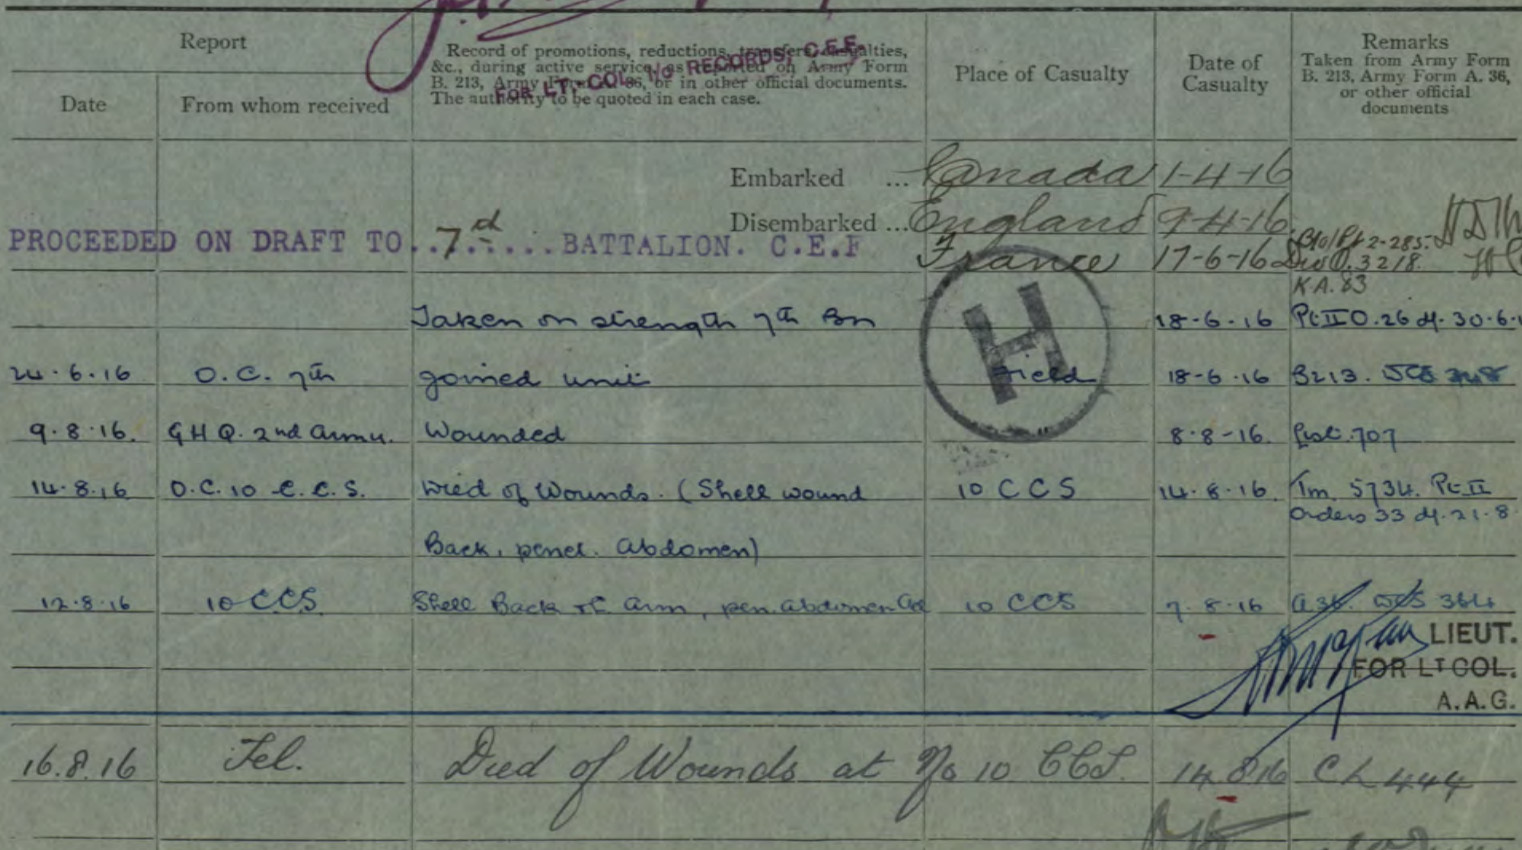 Report
Date
From whom received
Record of promotions, reductions, transfers, casualties,
&c., during active service, as reported on Army Form
B. 213, Army Form A. 36, or in other official documents.
The authority to be quoted in each case.
FOR LT. COL. i/c RECORDS, C.E.F.
Place of Casualty
Date of
Casualty
Remarks
Taken from Army Form
B. 213, Army Form A. 36,
or other official
documents
Embarked ... Canada 1-4-16
Disembarked ... England 9-4-16
PROCEEDED ON DRAFT TO ..7th.... BATTALION. C.E.F
France 17-6-16
2-285.
3218.
K.A. 83
Taken on strength 7th Bn 18-6-16 Pt II O. 26 d. 30-6-
24-6-16 O.C. 7th joined unit Field 18-6-16 B213.
9-8-16. GHQ. 2nd Army. Wounded 8-8-16. List. 707
14-8-16 O.C. 10 C.C.S. Died of Wounds. (Shell wound 10 CCS 14-8-16. Tm. 5734. Pt II
Orders 33 d. 21-8
Back, penet. Abdomen)
12-8-16 10 CCS. Shell Back Arm, pen. abdomen 10 CCS 7-8-16 A36. 364
LIEUT.
FOR LT COL.
A.A.G.
16.8.16 Tel. Died of Wounds at No 10 CCS. 14.8.16 CL 444
H